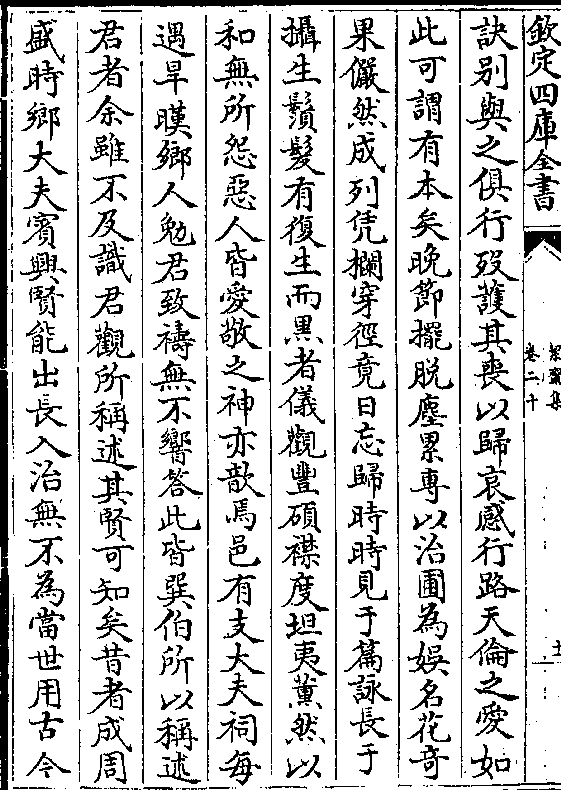 欽定四庫全書
絜齋集
卷二十
土
訣别與之俱行歿護其喪以歸哀感行路天倫之愛如
此可謂有本矣晚節擺脱塵累專以治圃為娛名花竒
果儼然成列凭欄穿徑竟日忘歸時時見于篇詠長于
攝生鬚髮有復生而黒者儀觀豐碩襟度坦夷薰然以
和無所怨惡人皆愛敬之神亦歆焉邑有支大夫祠每
遇旱暵鄉人勉君致禱無不響答此皆㢲伯所以稱述
君者余雖不及識君觀所稱述其賢可知矣昔者成周
盛時鄉大夫賓興賢能出長入治無不為當世用古今